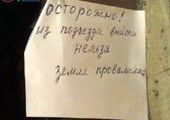 ОСТОРОЖНО!
из подъезда выйти
нельзя
земля провалилась